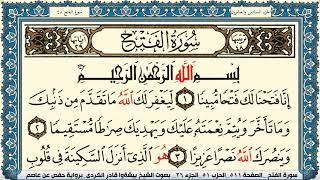 الجزء السادس والعشرون
سورة الفتح ٤٨
سُورَةُ الْفَتْحِ
بِسْمِ اللَّهِ الرَّحْمَٰنِ الرَّحِيمِ
إِنَّا فَتَحْنَا لَكَ فَتْحًا مُّبِينًا ١ لِّيَغْفِرَ لَكَ اللَّهُ مَا تَقَدَّمَ مِن ذَنبِكَ
وَمَا تَأَخَّرَ وَيُتِمَّ نِعْمَتَهُ عَلَيْكَ وَيَهْدِيَكَ صِرَاطًا مُّسْتَقِيمًا ٢
وَيَنصُرَكَ اللَّهُ نَصْرًا عَزِيزًا ٣ هُوَ الَّذِي أَنزَلَ السَّكِينَةَ فِي قُلُوبِ
سورة الفتح _ الصفحة ٥١١ _ الحزب ٥١ _ الجزء ٢٦ _ بصوت الشيخ بيشەوا قادر الكردي _ برواية حفص عن عاصم